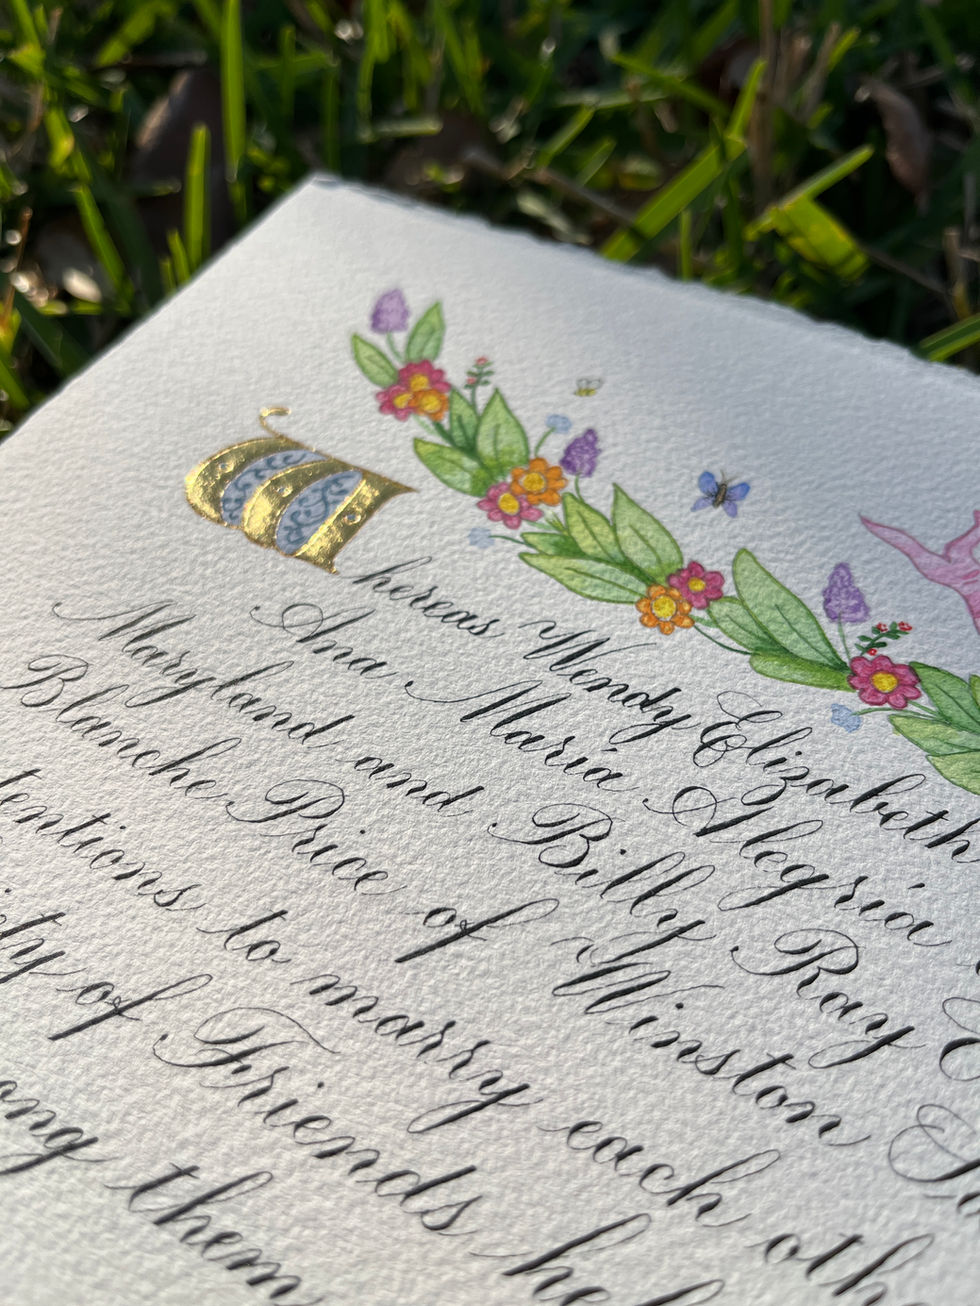 Whereas Wendy Elizabeth
Ana María Alegría
Maryland and Billy Ray
Blanche Price of Winston
tentions to marry each othe
ty of Friends he
ong them